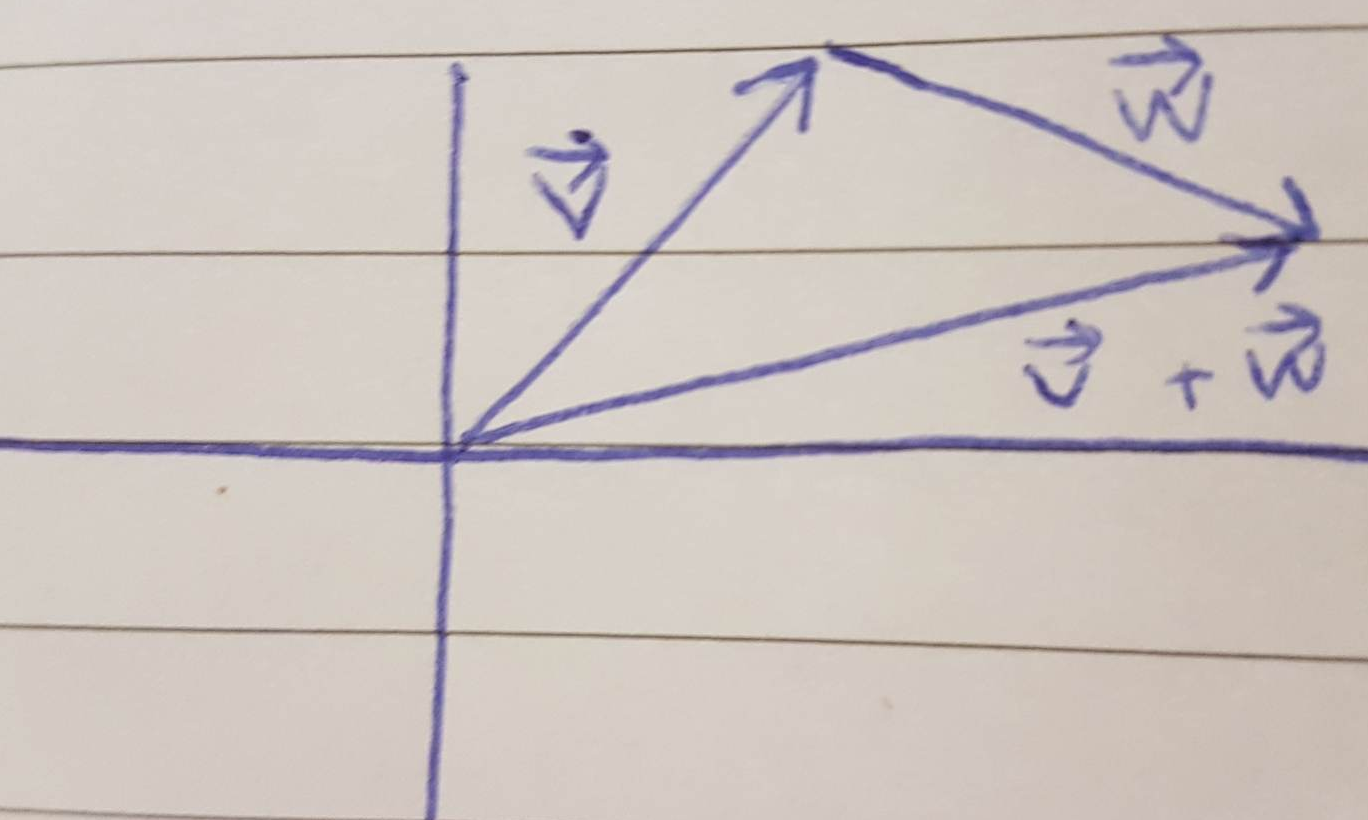 v⃗
w⃗
v⃗ + w⃗